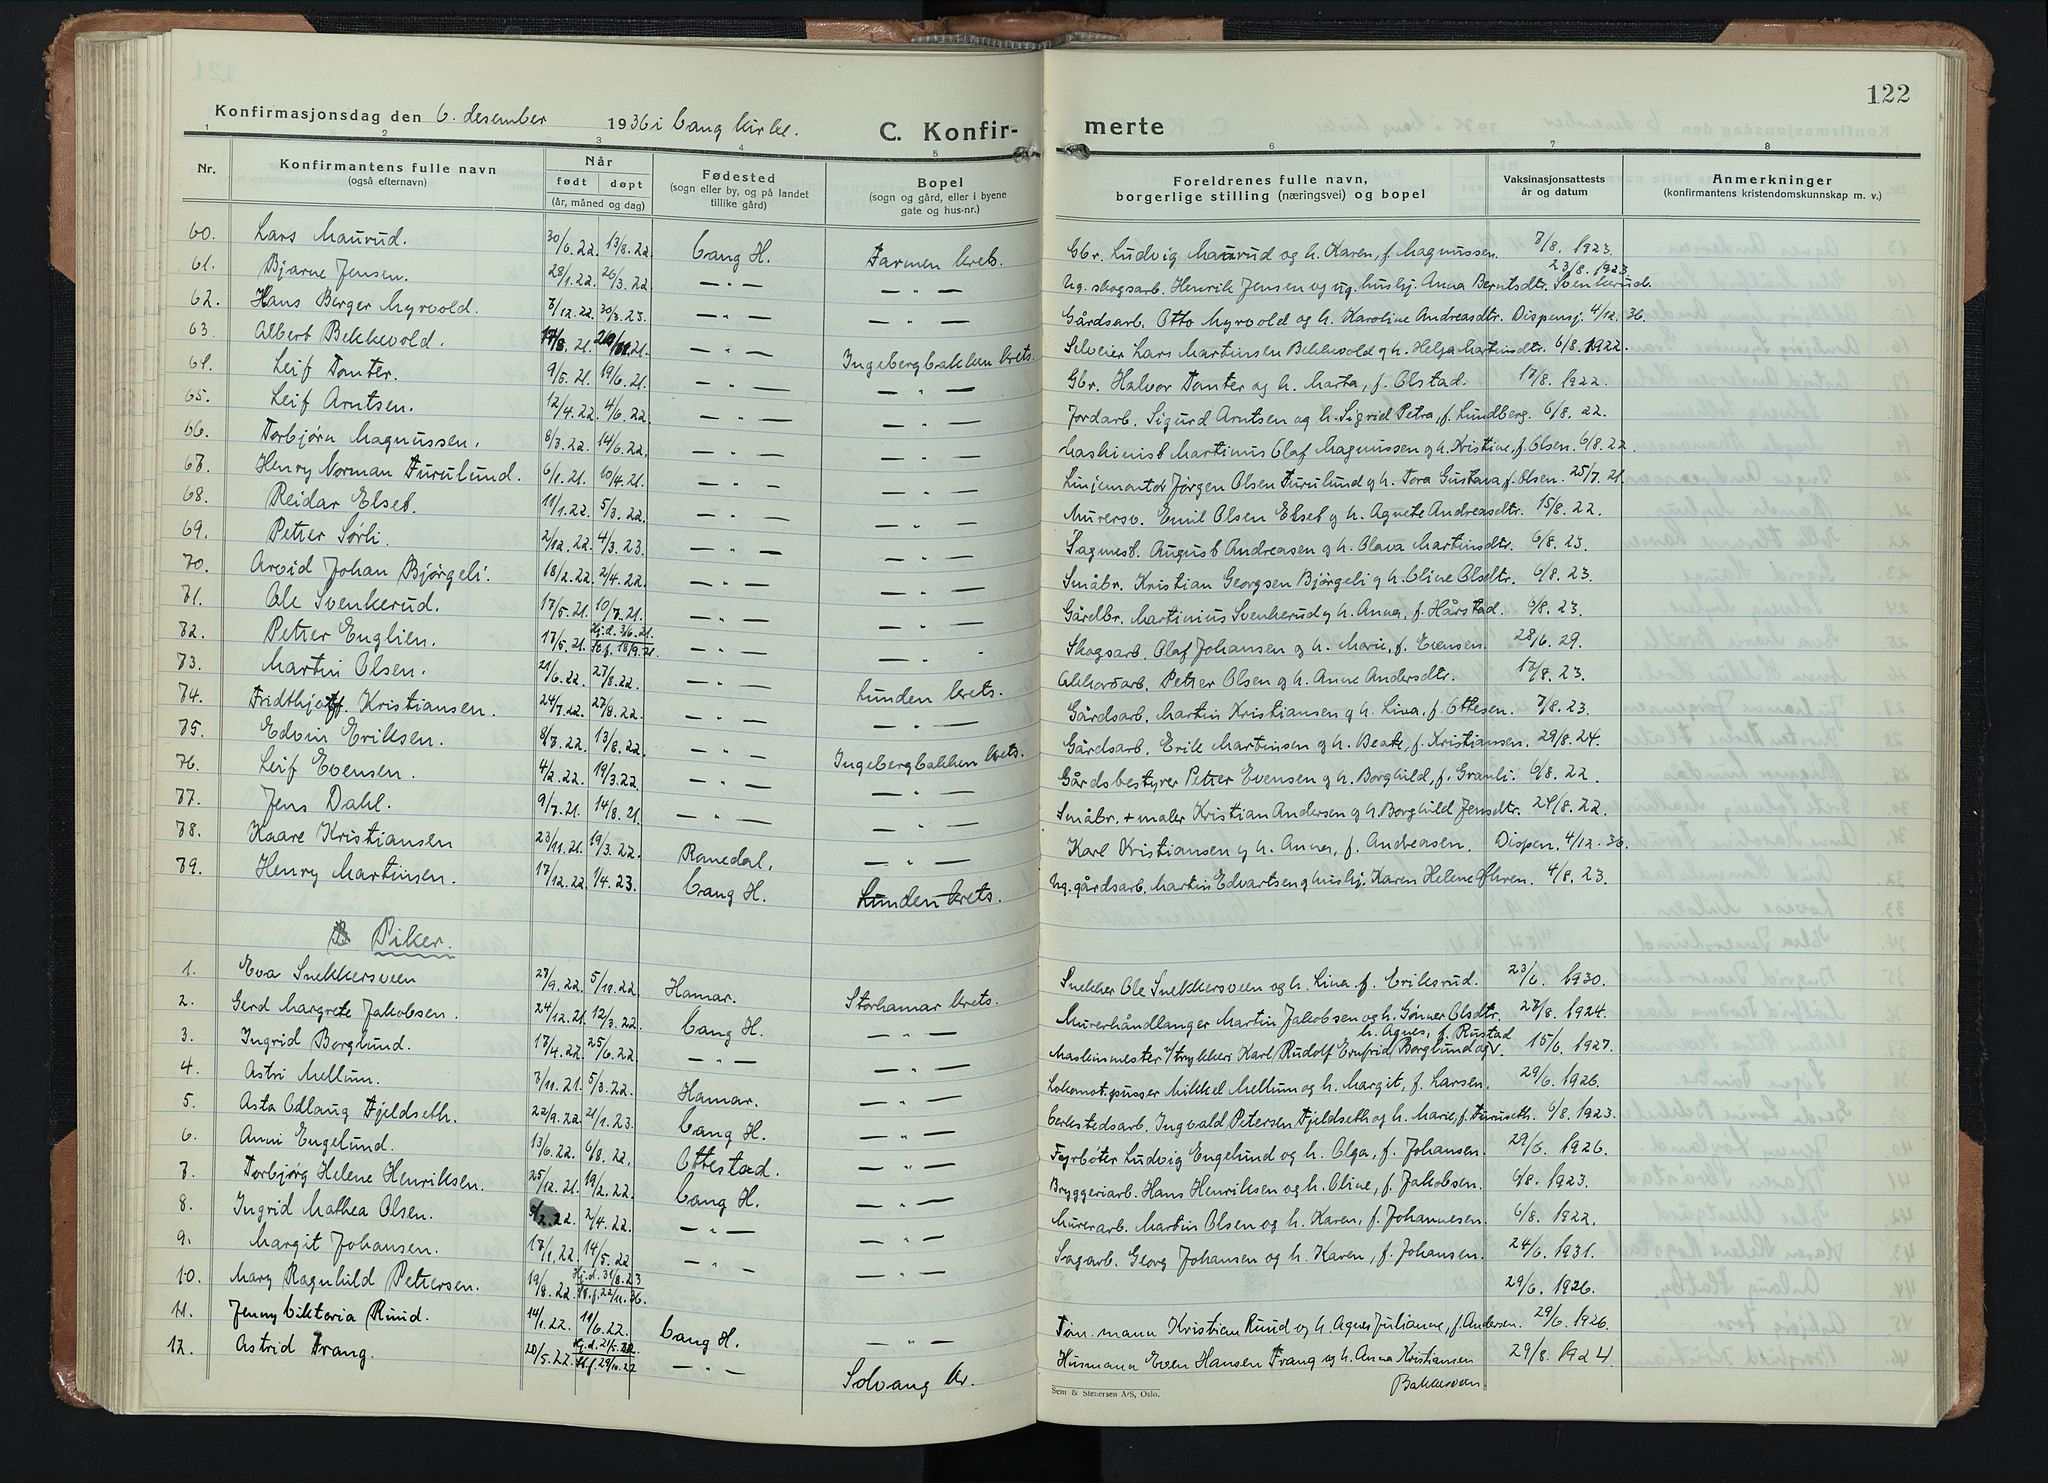 122
Konfirmasjonsdag den 6. desember 1936 i Vang kirke.
C. Konfir-
merte
1 2 3 4 5 6 7 8
Nr. Konfirmantens fulle navn (også efternavn) Når født døpt (år, måned og dag) Fødested (sogn eller by, og på landet tillike gård) Bopel (sogn og gård, eller i byene gate og hus-nr.) Foreldrenes fulle navn, borgerlige stilling (næringsvei) og bopel Vaksinasjonsattests år og datum Anmerkninger (konfirmantens kristendomskunnskap m. v.)
60. Lars Maurud. 30/6.22. 13/8.22 Vang H. Farmen krets. Gbr. Ludvig Maurud og h. Karen, f. Magnussen. 7/8. 1923.
61. Bjarne Jensen. 28/1.22. 26/3.22 — " — — " — Ug. skogsarb. Henrik Jensen og ug. hushj. Anna Berntsdtr. Svenkerud. 23/8. 1923
62. Hans Berger Myrvold. 7/12.22. 30/3.23. — " — — " — Gårdsarb. Otto Myrvold og h. Karoline Andreasdtr. Dispensj. 4/12. 36.
63. Albert Bekkevold. 17/8.21. 21. — " — Ingebergbakken krets. Selveier Lars Martinsen Bekkevold og h. Helga Martinsdtr. 6/8. 1922.
64. Leif Tomter. 9/5.21. 19/6.21. — " — — " — Gbr. Halvor Tomter og h. Marta, f. Olstad. 17/8. 1922.
65. Leif Arntsen. 12/4.22. 4/6.22. — " — — " — Jordarb. Sigurd Arntsen og h. Sigrid Petra, f. Lundberg. 6/8. 22.
66. Torbjørn Magnussen. 8/3.22. 14/6.22. — " — — " — Maskinist Martinus Olaf Magnussen og h. Kristine, f. Olsen. 6/8. 22.
67. Henry Norman Furulund. 6/1.21. 10/4.21. — " — — " — Linjemontør Jørgen Olsen Furulund og h. Tora Gustava, f. Olsen. 25/7. 21.
68. Reidar Elset. 11/1.22. 5/3.22. — " — — " — Murersv. Emil Olsen Elset og h. Agnete Andreasdtr. 15/8. 22.
69. Petter Sørli. 2/12.22. 4/3.23. — " — — " — Sagmest. August Andreasen og h. Olava Martinsdtr. 6/8. 23.
70. Arvid Johan Bjørgeli. 18/2.22. 2/4.22. — " — — " — Småbr. Kristian Georgsen Bjørgeli og h. Oline Olsdtr. 6/8. 23.
71. Ole Svenkerud. 17/5.21. 10/7.21. — " — — " — Gårdbr. Martinius Svenkerud og h. Anna, f. Hårstad. 6/8. 23.
72. Petter Englien. 17/5.21. Hj.d. 3/6.21. St.f. 18/9.21. — " — — " — Skogsarb. Olaf Johansen og h. Marie, f. Evensen. 28/6. 29.
73. Martin Olsen. 21/6.22. 27/8.22. — " — Lunden krets. Akkordarb. Petter Olsen og h. Anne Andersdtr. 17/8. 23.
74. Fridthjoff Kristiansen. 24/7.22. 27/8.22. — " — — " — Gårdsarb. Martin Kristiansen og h. Lina, f. Ottesen. 7/8. 23.
75. Edvin Eriksen. 8/7.22. 13/8.22. — " — Ingebergbakken krets. Gårdsarb. Erik Martinsen og h. Beate, f. Kristiansen. 29/8. 24.
76. Leif Evensen. 4/2.22. 19/3.22 — " — — " — Gårdsbestyrer Petter Evensen og h. Borghild, f. Granli. 6/8. 22.
77. Jens Dahl. 9/7.21. 14/8.21. — " — — " — Småbr. + maler Kristian Andersen og h. Borghild Jensdtr. 24/8. 22.
78. Kaare Kristiansen 23/11.21. 19/3.22. Romedal. — " — Karl Kristiansen og h. Anna, f. Andreasen. Dispen. 4/12. 36.
79. Henry Martinsen. 17/12.22. 1/4.23. Vang H. Lunden krets. Ug. gårdsarb. Martin Edvartsen og hushj. Karen Helene Øhren. 4/8. 23.
B Piker.
1. Eva Snekkersveen 27/9.22. 5/10.22 Hamar. Storhamar krets. Snekker Ole Snekkersveen og h. Lina f. Eriksrud. 23/6. 1930.
2. Gerd Margrete Jakobsen. 24/12.21. 12/3.22. Vang H. — " — Murerhåndlanger Martin Jakobsen og h. Gønner Olsdtr. 27/8. 1924.
3. Ingrid Borglund. 17/4.22. 25/6.22 — " — — " — Maskinmester v/ trykkeri Karl Rudolf Ernfrid Borglund og h. Agnes, f. Rustad 15/6. 1927.
4. Astri Mellum. 7/11.21. 5/3.22. Hamar. — " — Lokomot.pusser Mikkel Mellum og h. Margit, f. Larsen. 29/6. 1926.
5. Asta Odlaug Fjeldseth. 22/9.22. 21/1.23. Vang H. — " — Verkstedsarb. Ingvald Petersen Fjeldseth og h. Marie, f. Furuseth. 6/8. 1923.
6. Anni Engelund. 13/6.22. 6/8.22. Ottestad. — " — Fyrbøter Ludvig Engelund og h. Olga, f. Johansen. 29/6. 1926.
7. Torbjørg Helene Henriksen. 25/12.21. 19/2.22. Vang H. — " — Bryggeriarb. Hans Henriksen og h. Oline, f. Jakobsen. 6/8. 1923.
8. Ingrid Mathea Olsen. 5/2.22. 2/4.22. — " — — " — Murerarb. Martin Olsen og h. Karen, f. Johannesen. 6/8. 1922.
9. Margit Johansen. 17/1.22 14/5.22 — " — — " — Sagarb. Georg Johansen og h. Karen, f. Johansen. 24/6. 1931.
10. Mary Ragnhild Pettersen. 19/8.22. Hj.d. 31/8.23 St.f. 22/11.36. — " — 29/6. 1926.
11. Jenny Viktoria Ruud. 14/1.22. 11/6.22. Vang H. — " — Tøm.mann Kristian Ruud og h. Agnes Julianne, f. Andersen. 29/6. 1926.
12. Astrid Frang. 20/5.22. Hj.d. 21/5.22. St.f. 29/6.22 — " — Solvang kr. Husmann Even Hansen Frang og h. Anna Kristiansen Bakkesveen 29/8. 1924.
Sem & Stenersen A/S, Oslo.